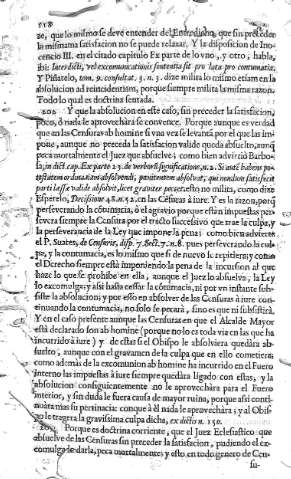 ze, que lo mismo se deve entender del Entredicho, que sin preceder
la misma satisfacion no se puede relaxar. Y la disposicion de Ino-
cencio III. en el citado capitulo Ex parte de los no , y otro , habla,
ibi: Interdicti, vel excommunicationis sententia sit pro lata pro contumatia.
Y Piñatelo, tom. 9. consultat. 3. n. 3. dize milita lo mismo etiam en la
absolucion ad reincidentiam, porque siempre milita la misma razon.
Todo lo qual es doctrina sentada.
202 Y que la absolucion en este caso, sin preceder la satisfacion,
poco, ó nada le aprovecharà se convence. Porque aunque es verdad
que en las Censuras ab homine si vna vez se levanta por el que las im-
pone, aunque no preceda la satisfacion valide queda absuelto, aunq
peca mortalmente el Juez que absuelve; como bien advirtió Barbo-
sa, in dict. cap. Ex parte 23. de verbor. significat. n. 2.
parti læsæ validè absolvit, licet graviter peccet, esto no milita, como dize
Esperelo, Decision. 48. n. 42. en las Césuras à iure. Y es la razon, porq
perseverando la cótumacia, ó el agravio porque estàn impuestas per-
severa siempre la Censura por el tracto successivo que trae la culpa, y
la perseverancia de la Ley que impone la pena; como bien advierte
el P. Suarez, de Censuris, disp. 7. Sect. 7. n. 8. pues perseverando la cul-
pa, y la contumacia, es lo mismo que si de nuevo se repitiera; y como
el Derecho siempre està imponiendo la pena de la incursion al que
haze lo que se prohibe en ella, aunque el Juez lo absuelva, la Ley
lo excomulga; y assi hasta cessar la cótumacia, ni por vn instante sub-
siste la absolucion; y por esso en absolver de las Césuras à iure conti-
nuando la contumacia, no solo se pecarà, sino es que ni subsistirà.
Y en el caso presente aunque las Censuras en que el Alcalde Mayor
està declarado son ab homine (porque no lo es toda via en las que ha
incurrido à iure) y de estas si el Obispo le absolviera quedàra ab-
suelto, aunque con el gravamen de la culpa que en ello cometiera;
como ademàs de la excomunion ab homine ha incurrido en el Fuero
interno las impuestas à iure siempre quedàra ligado con estas, y la
absolucion consiguientemente no le aprovechàra para el Fuero
interior, y sin duda le fuera causa de mayor ruina, porque assi conti-
nuàra mas su pertinacia: conque à èl nada le aprovechàra; y al Obis-
po le tragera la gravissima culpa dicha, ex dicto n. 150.
Porque es doctrina corriente, que el Juez Eclesiastico que
absuelve de las Césuras sin preceder la satisfacion, pudiendo el ex-
comulgado darla, peca mortalmente; y esto en todo genero de Cen-
su-